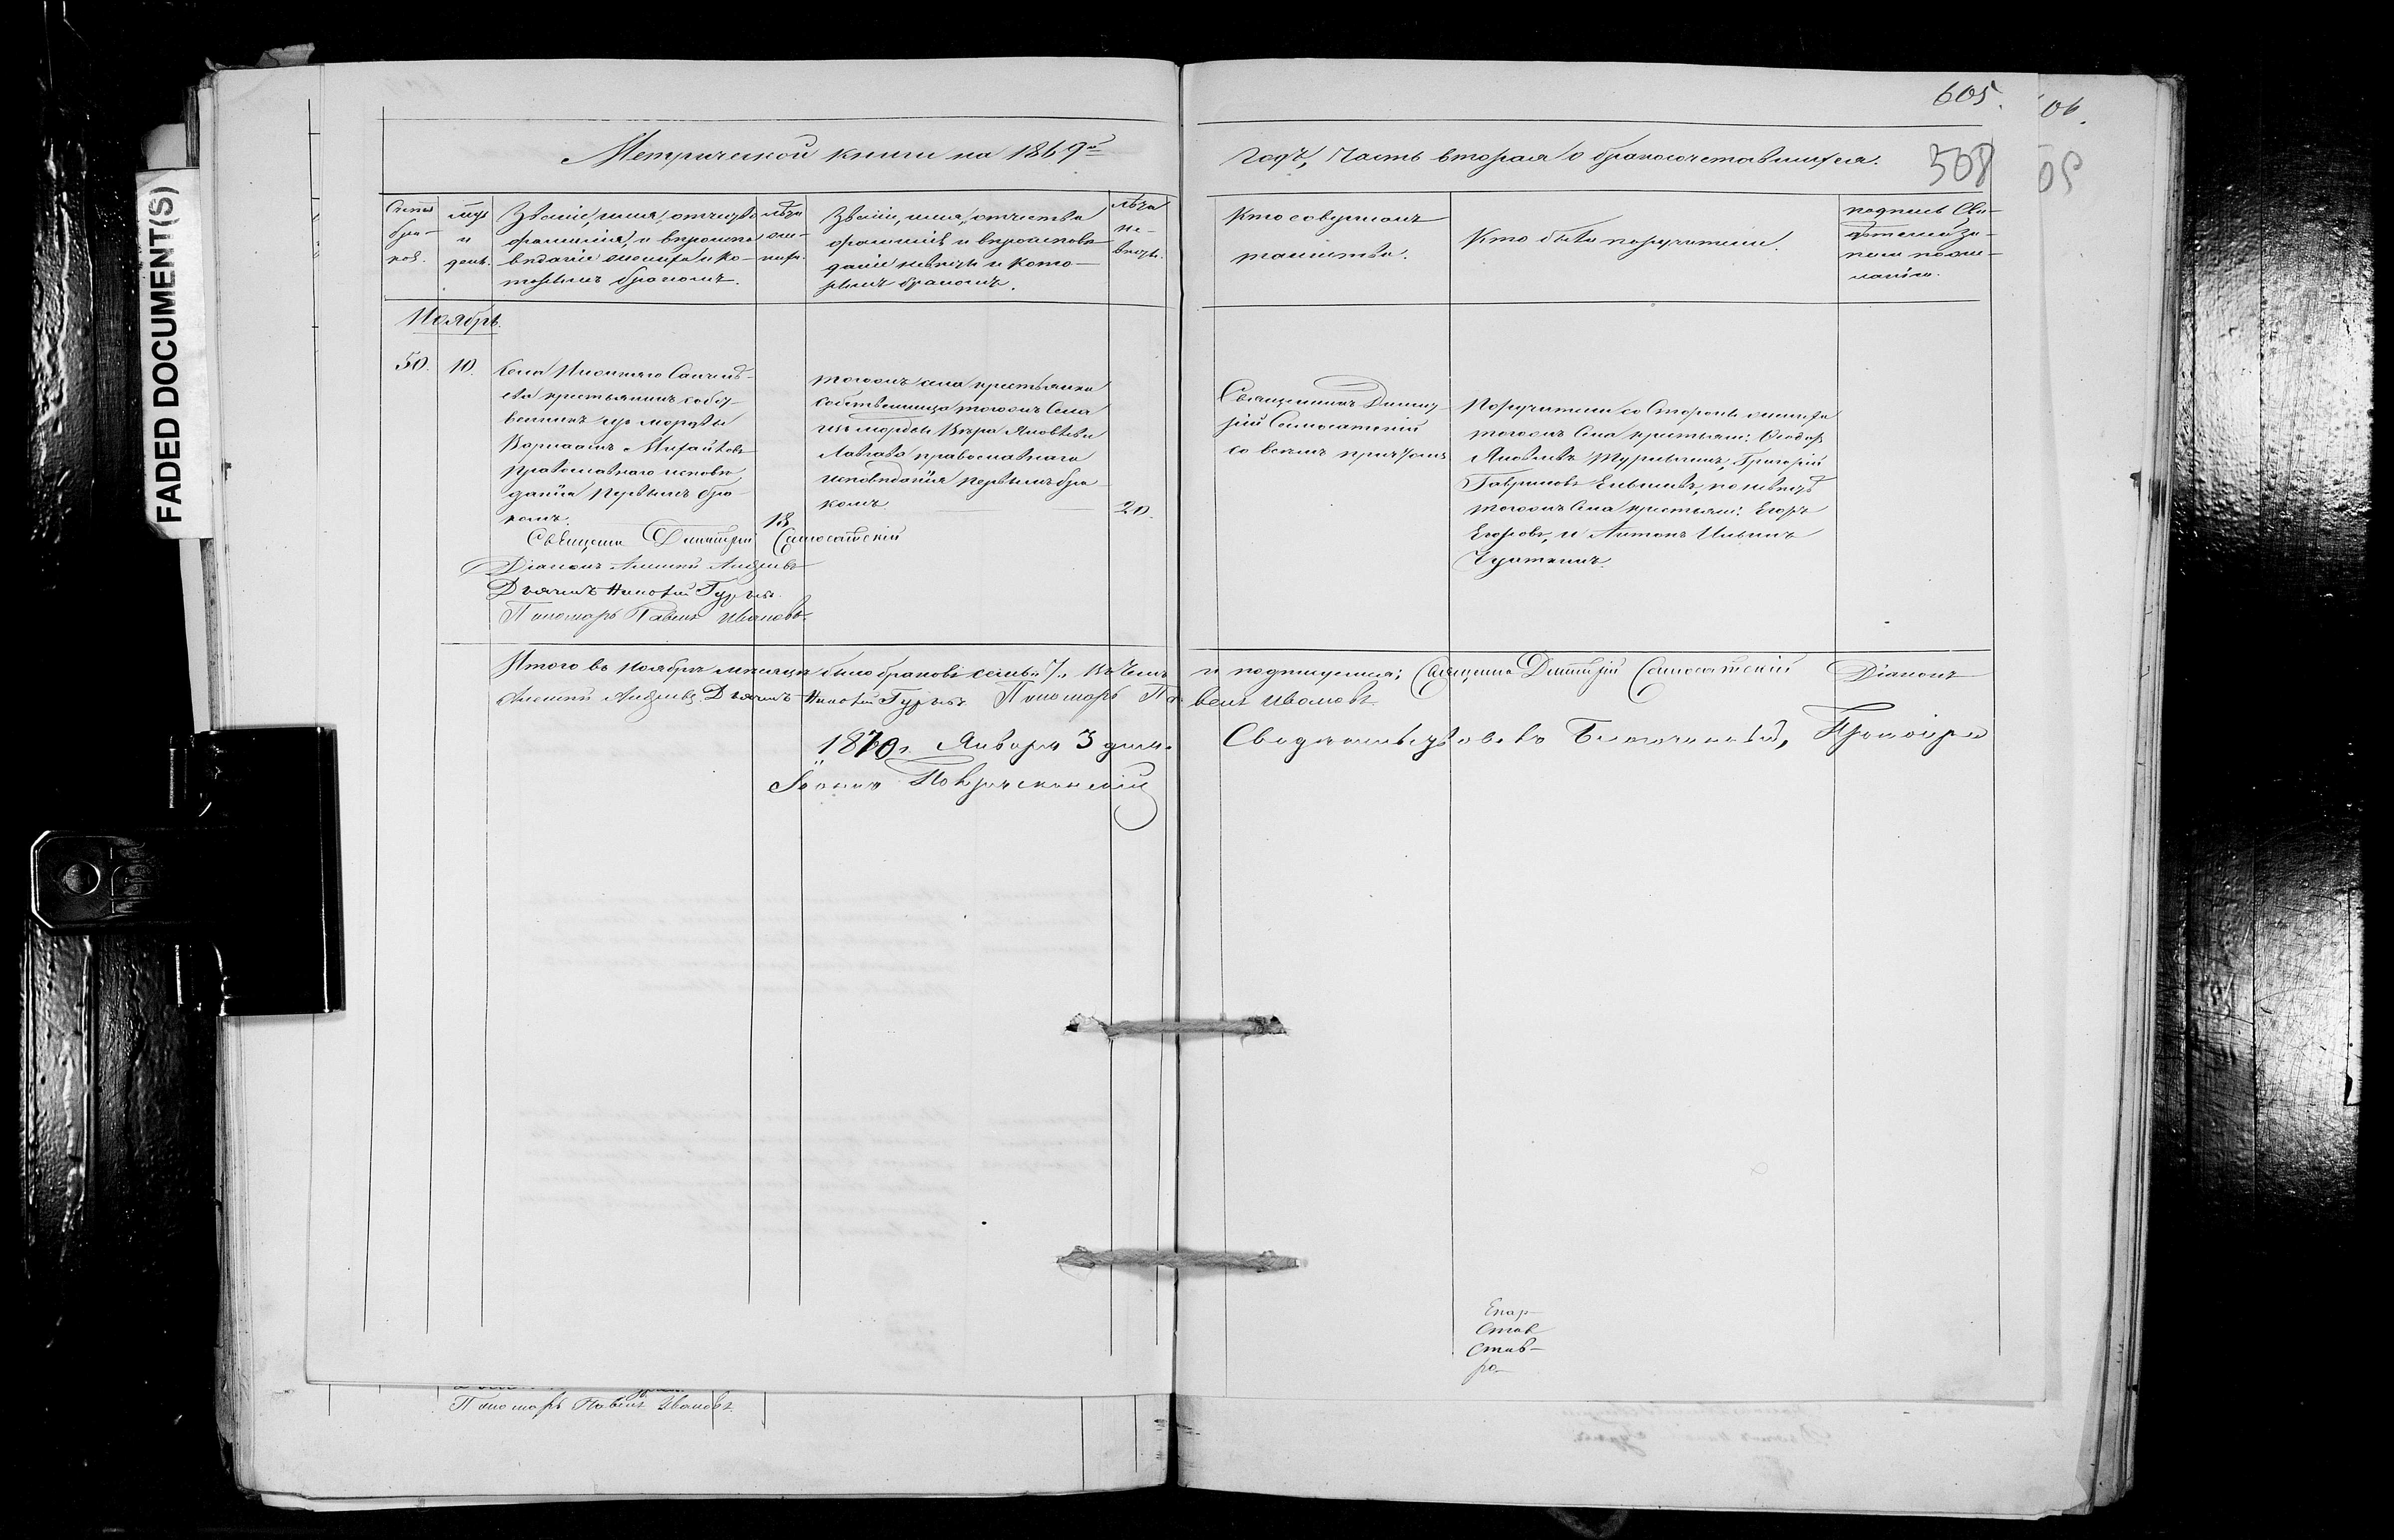 FADED DOCUMENT(S)
605.
Метрической книги на 1869й
годъ, Часть вторая о бракосочетавшихся.
508
Счетъ бра-ковъ.
мѣс и день.
Званіе, имя, отчество
фамилія, и вѣроиспо-
вѣданіе жениха и ко-
торымъ бракомъ.
лѣта
же-
ниха.
Званіе, имя, отчество
фамилія и вѣроисповѣ-
даніе невѣсты и кото-
рымъ бракомъ.
лѣта
не-
вѣсты.
Кто совершалъ
таинство.
Кто были поручители.
подпись Сви-
дѣтелей за-
писи по же-
ланію.
Ноябрь.
50. 10.
Села
крестьянинъ собст-
венникъ изъ мордвы
Варлаамъ Михайловъ
Православнаго исповѣ
данія первымъ бра-
комъ.
18
тогожъ села крестьянка
собственница тогожъ Села
изъ мордвы Вѣра Яковлева
православнаго
исповѣданія первымъ бра-
комъ
20.
Священникъ Димит-
рій Самосатскій
со всемъ причтомъ
Поручители со Стороны жениха
тогожъ Села крестьяне: Ѳеодоръ
Яковлевъ Григорій
Гавриловъ по невѣстѣ
тогожъ Села крестьяне: Егоръ
Егоровъ, и Антонъ Ильинъ
Священн Димитрій Самосатскій
Діаконъ Алексѣй Андреевъ
Дьячекъ Николай Гурьевъ.
Пономарь Павелъ Ивановъ.
Итого въ Ноябрѣ мѣсяцѣ было браковъ семь „7„ Въ Чемъ и подпишемся: Священн Димитрій Самосатскій Діаконъ
Алексѣй Андреевъ. Дьячекъ Николай Гурьевъ. Пономарь Павелъ Ивановъ.
1870 г. Января 3 дня. Свидѣтельствовалъ Благочинный, Протоіерей
Іоаннъ
Епар-
Став
Став-
ро-
Пономарь Павелъ Ивановъ.